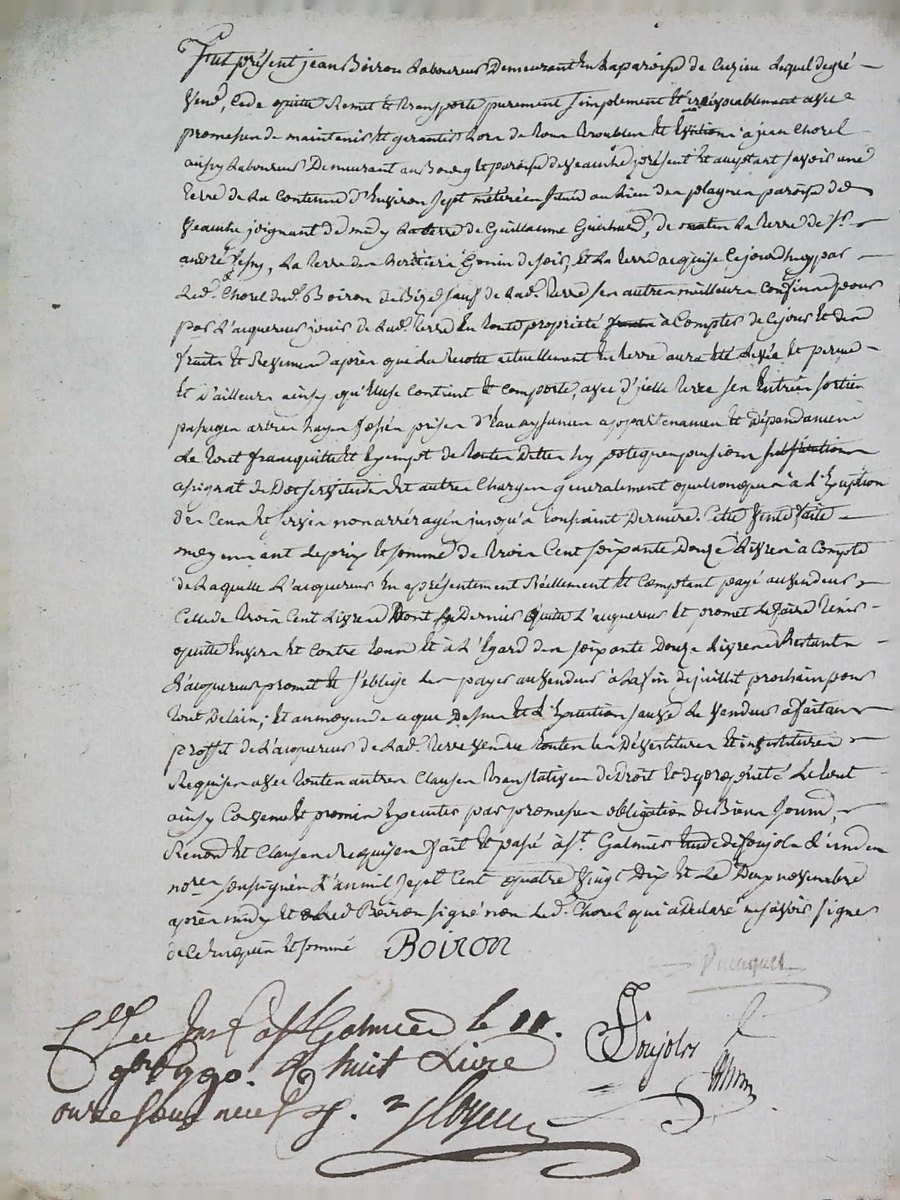 Fut présent jean Boiron Laboureur Demeurant En La paroisse de Cuzieu Lequel de gré
Vend, Cede quitte Remet et transporte purement simplement et irrévocablement avec
promesse de maintenir et garantir Lors de tous troubles et Eviction a jean Chorel
aussy Laboureur Demeurant au Bourg et paroisse de Veauche présent et acceptant savoir une
terre de La Contenue d'Environ sept méterées située au Lieu des plagnes paroisse de
Veauche joignant de midy La terre de Guillaume de matin La terre de Sr.
andré La terre des héritiers Gonin de soir, et La terre acquise cejourdhuy par
Led. Chorel dud. Boiron de Bize sauf de Lad. terre ses autres meilleurs Confins pour
par L'aquereur jouir de Lad. terre En toute propriété à Compter de Ce jour et des
fruits et Revenus après que La Recolte actuellement En terre aura été Levée et perçue
Et d'ailleurs ainsy qu'Elle Contient et Comporte, avec d'icelle terre ses Entrées sorties
passages arbres hayes fossés prises d'Eau aysances appartenances et dépendances
Le tout franc quitte et Exempt de toutes Dettes hypoteques pensions
assignat de Dot servitudes et autres Charges generalement quelconques à L'Exception
des Cens et servis non arréragés jusqu'à Dernière. Cette Vente faite
moyennant Le prix et somme de trois Cent soixante Douze Livres à Compte
de Laquelle L'acquereur En a présentement Réellement et Comptant payé au Vendeur
Celle de trois Cent Livres Dont Ce Dernier quitte L'aquereur et promet Le faire tenir
quitte Envers et Contre tous et à L'Egard des soixante Douze Livres Restantes
L'acquereur promet et s'oblige Les payer au Vendeur à La fin de juillet prochain pour
tout Delais; Et au moyen de ce que Dessus et L'Exécution sauve Le Vendeur a fait au
proffit de L'acquereur de Lad. terre Vendue toutes Les Dévestitures et investitures
Requises avec toutes autres Clauses translatives de Droit et de propriété Le tout
ainsy Convenu et promis Executer par promesses obligation de Biens soumis,
Renonc. Et Clauses Requises fait et passé à St. Galmier Etude de Soujols L'un des
nores. soussignés L'an mil sept Cent quatre Vingt Dix et Le Deux novembre
après midy et a Led. Boiron signé non Led. Chorel qui a Déclaré ne savoir signer
de Ce Enquis et sommé Boiron
Cllé. Ins. a St Galmier le 11.
9bre 1790. R huit Livre
onze sous neuf d.
Soujols